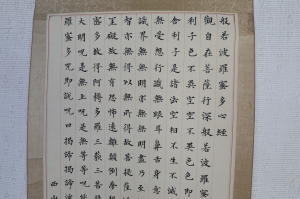 般若波羅蜜多心經
觀自在菩薩行深般若波羅蜜
利子色不異空空不異色色即
舍利子是諸法空相不生不滅
無受想行識無眼耳鼻舌身意
識界無無明亦無無明盡乃至
智亦無得以無所得故菩提薩
罣礙故無有恐怖遠離顛倒夢想
蜜多故得阿耨多羅三藐三菩提
大明呪是無上呪是無等等呪
羅蜜多呪即說呪曰揭諦揭諦
西山